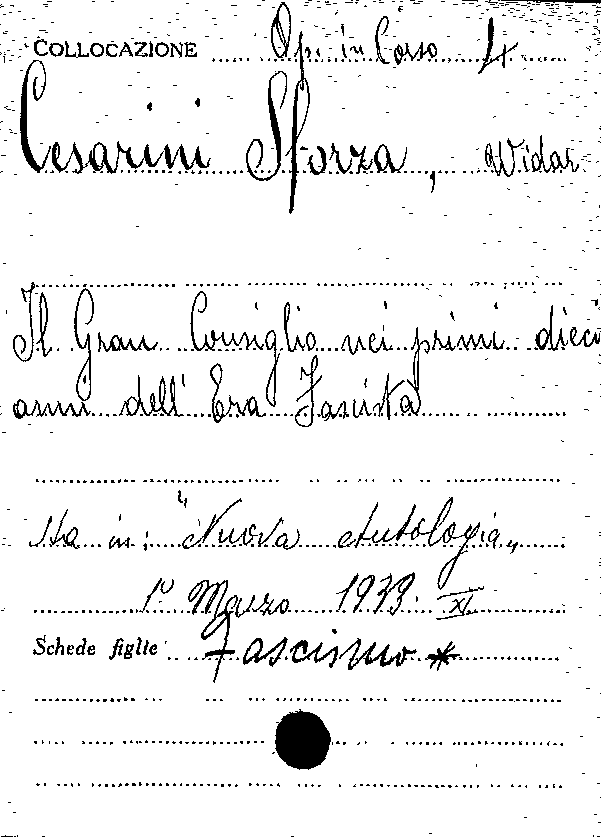 COLLOCAZIONE Op. in Corso 4
Cesarini Sforza, Widar
Il Gran Consiglio nei primi dieci
anni dell' Era Fascista
Sta in: "Nuova Antologia„
1° Marzo 1933. XI
Schede figlie Fascismo *